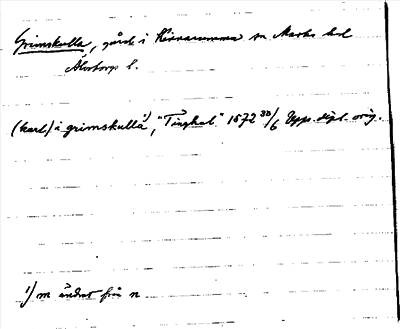 Grimskulla, gård i Kinnarumma sn Marks hd
Älvsborgs l.
(karl) i grimskulla¹⁾, "Tingkal" 1572 30/6 Upps. dipl. orig.
1) m ändrat från n